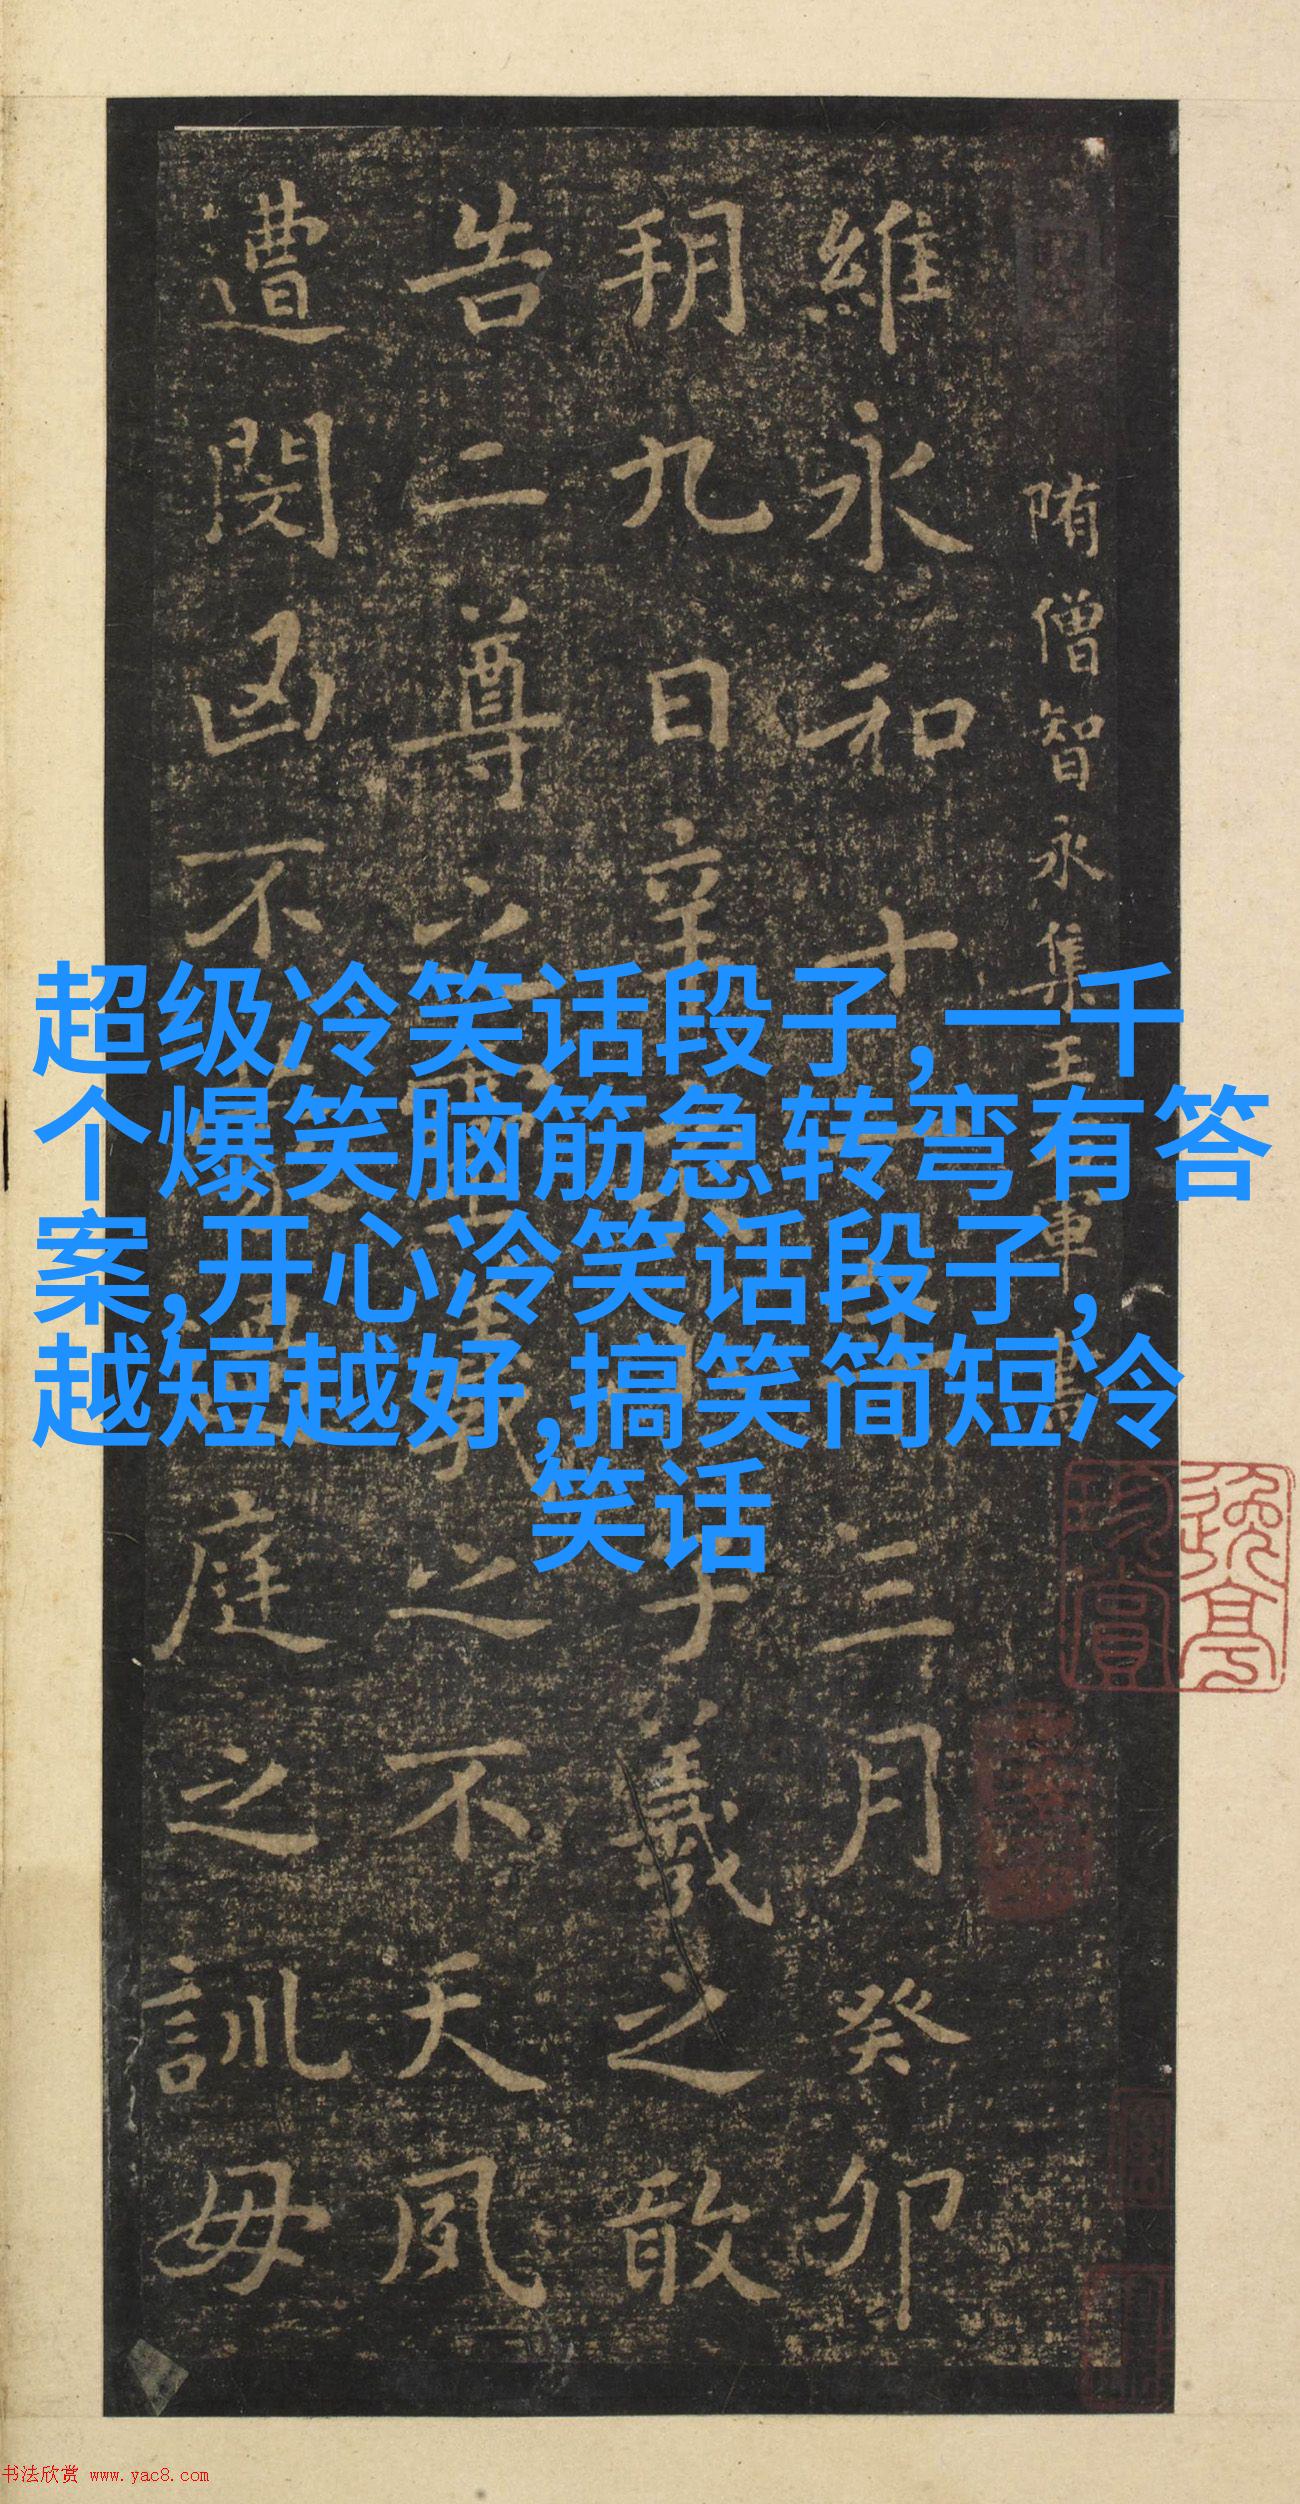 隋僧智永集王右軍書
維永和十一年三月癸卯
朔九日辛亥小子羲之敢
告二尊之靈羲之不天夙
遭閔凶不蒙過庭之訓毋
超级冷笑话段子,一千
个爆笑脑筋急转弯有答
案,开心冷笑话段子,
越短越好,搞笑简短冷
笑话
珍賞
书法欣赏 www.yac8.com